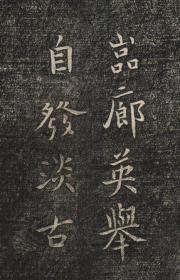 嵓廊英舉
自發淡古